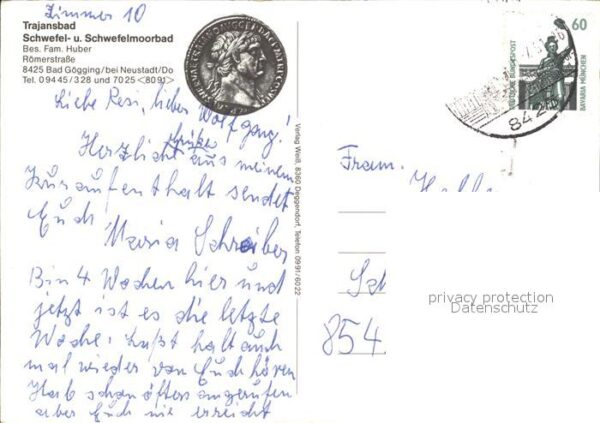 Zimmer 10
Trajansbad
Schwefel- u. Schwefelmoorbad
Bes. Fam. Huber
Römerstraße
8425 Bad Gögging/bei Neustadt/Do
Tel. 09445/328 und 7025 <809>
Liebe Resi, lieber Wolfgang!
Herzliche Grüße aus meinem
Kuraufenthalt sendet
Euch
Maria Schreiber
Bin 4 Wochen hier und
jetzt ist es die letzte
Woche. Laßt halt auch
mal wieder von Euch hören
Hab schon öfters angerufen
aber Euch nie erreicht
Verlag Weiß, 8360 Deggendorf, Telefon 0991/6022
60
DEUTSCHE BUNDESPOST
BAVARIA MÜNCHEN
842
Fram.
854
privacy protection
Datenschutz